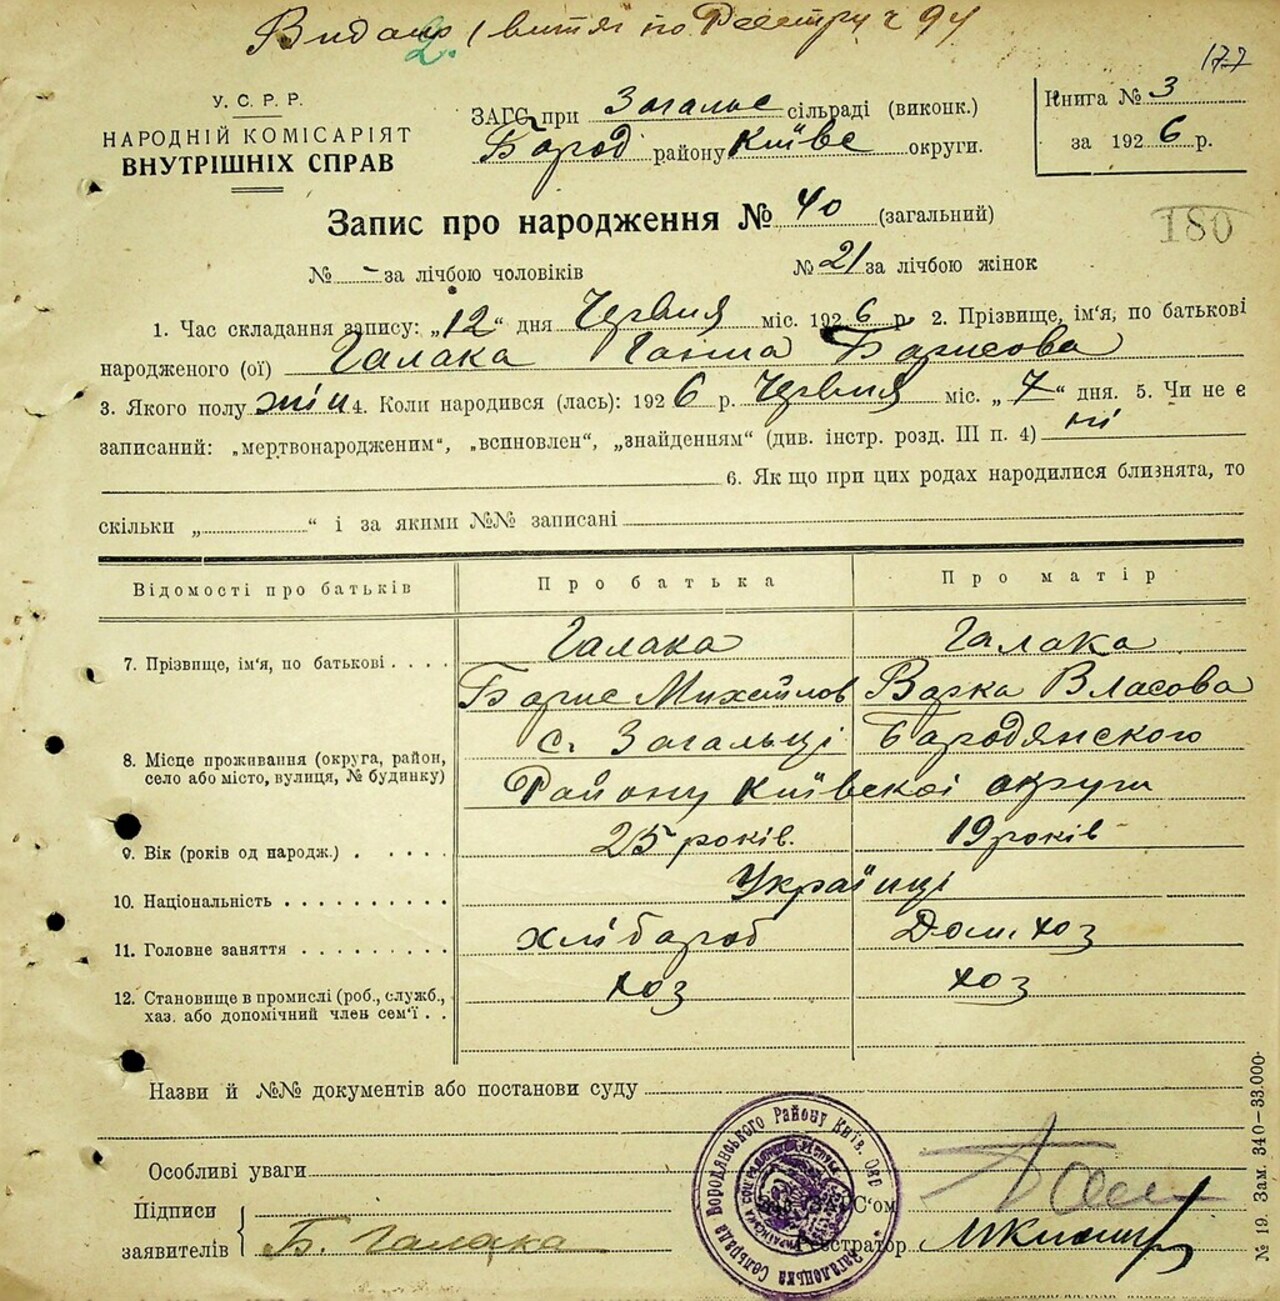 Видано 1 витяг по Реєстру ч 94
2.
177
У. С. Р. Р.
НАРОДНІЙ КОМІСАРІЯТ
ВНУТРІШНІХ СПРАВ
ЗАГС при Загальс сільраді (виконк.)
Бород району Київс округи.
Книга № 3
за 1926 р.
Запис про народження № 40 (загальний)
180
№ - за лічбою чоловіків
№ 21 за лічбою жінок
1. Час складання запису: „12“ дня Червня міс. 1926 р. 2. Прізвище, ім‘я, по батькові
народженого (ої) Галака Ганна Борисова
3. Якого полу жін 4. Коли народився (лась): 1926 р. Червня міс. „7“ дня. 5. Чи не є
записаний: „мертвонародженим“, „всиновлен“, „знайденням“ (див. інстр. розд. III п. 4) ні
6. Як що при цих родах народилися близнята, то
скільки „ “ і за якими №№ записані
Відомості про батьків Про батька Про матір
7. Прізвище, ім‘я, по батькові Галака Галака
Борис Михайлов Варка Власова
8. Місце проживання (округа, район, село або місто, вулиця, № будинку) с. Загальці Бородянского
Району Київскоі округи
9. Вік (років од народж.) 25 років. 19 років
10. Національність Українці
11. Головне заняття хлібороб Дом. хоз
12. Становище в промислі (роб., служб., хаз. або допомічний член сем‘ї хоз хоз
Назви й №№ документів або постанови суду
Особливі уваги
Підписи
заявителів Б. Галака
Зав. ЗАГС‘ом
Реєстратор
Загалецька Сельрада Бородянського Району Київ. Окр
№ 19. Зам. 340—33.000·